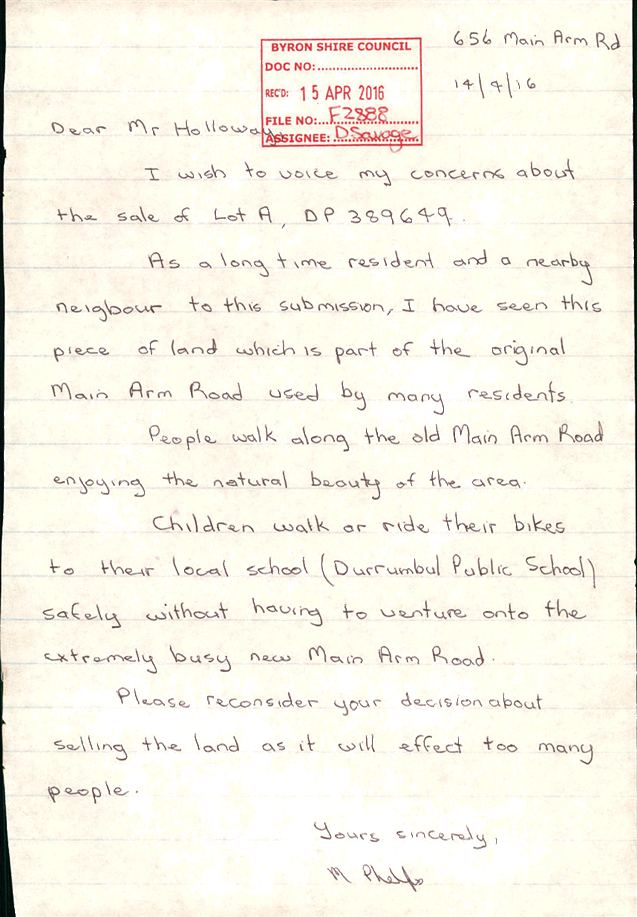 656 Main Arm Rd
BYRON SHIRE COUNCIL
DOC NO:..............................
REC'D: 15 APR 2016
14/4/16
FILE NO:...F2888
ASSIGNEE: DSavage
Dear Mr Holloway,
I wish to voice my concerns about
the sale of Lot A, DP 389649.
As a long time resident and a nearby
neigbour to this submission, I have seen this
piece of land which is part of the original
Main Arm Road used by many residents.
People walk along the old Main Arm Road
enjoying the natural beauty of the area.
Children walk or ride their bikes
to their local school (Durrumbul Public School)
safely without having to venture onto the
extremely busy new Main Arm Road.
Please reconsider your decision about
selling the land as it will effect too many
people.
Yours sincerely,
M Phelps